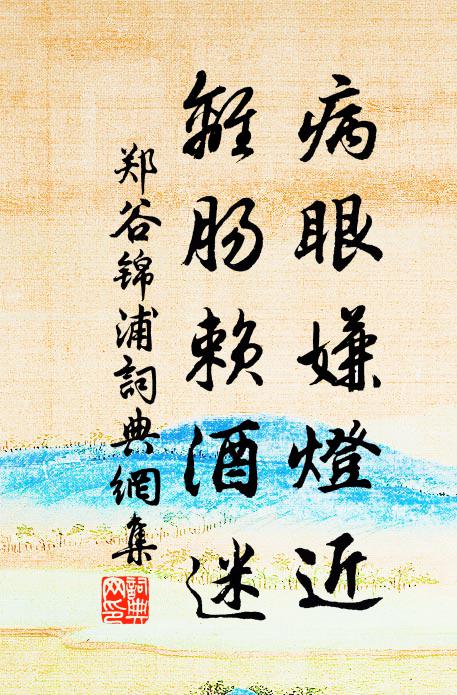 病眼嫌燈近
離肠赖酒迷
郑谷锦浦詞典網集
詞典网印